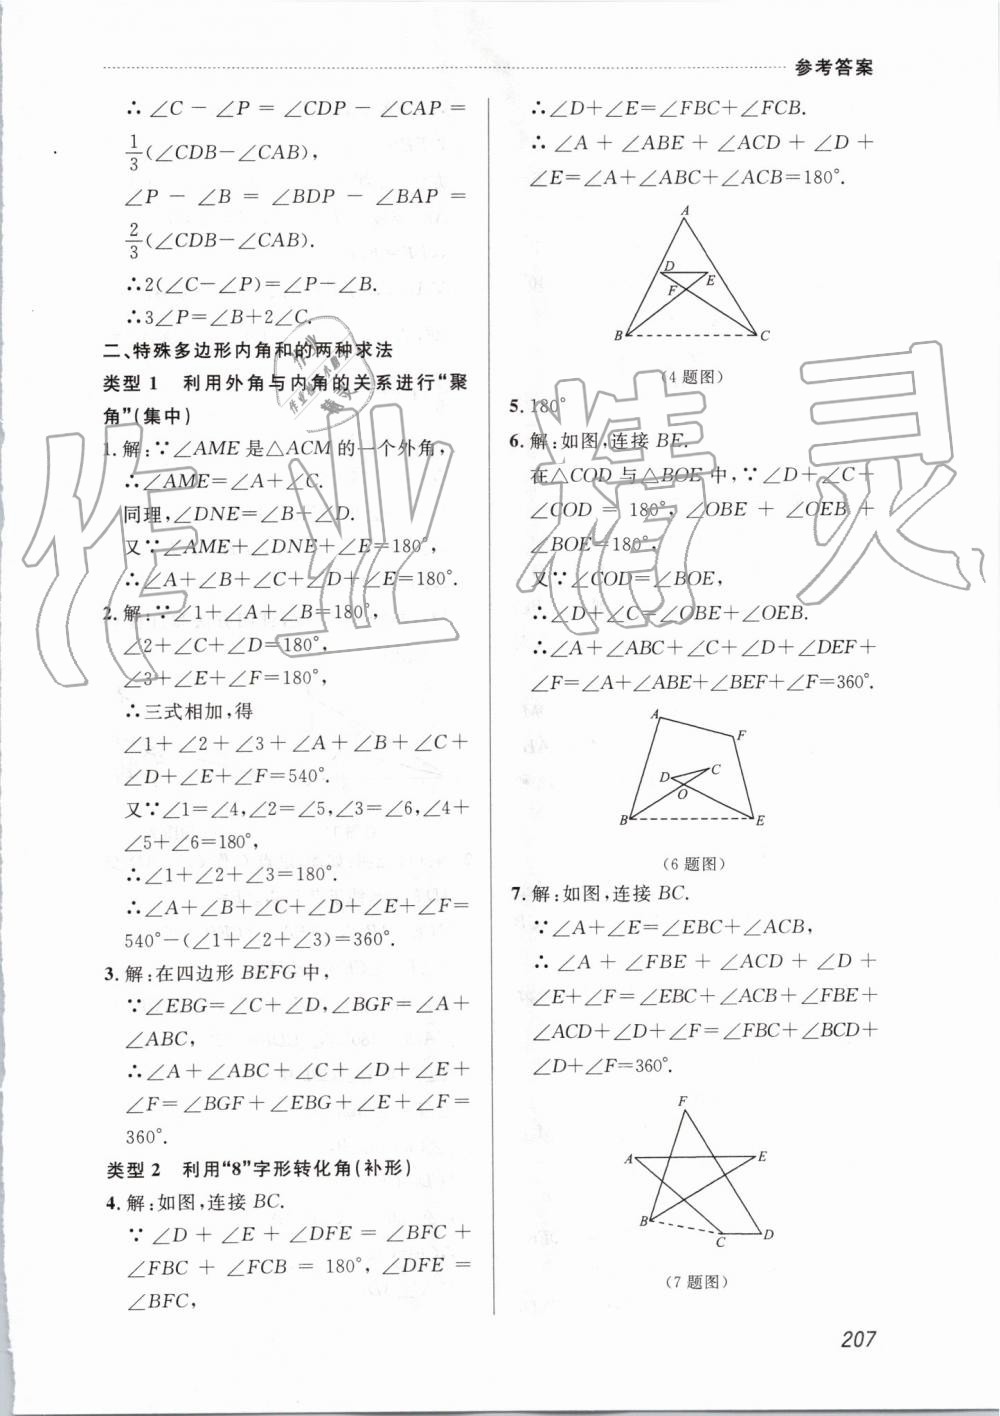 参考答案
∴∠C-∠P=∠CDP-∠CAP=
1/3(∠CDB-∠CAB),
∠P-∠B=∠BDP-∠BAP=
2/3(∠CDB-∠CAB).
∴2(∠C-∠P)=∠P-∠B.
∴3∠P=∠B+2∠C.
二、特殊多边形内角和的两种求法
类型1 利用外角与内角的关系进行“聚
角”(集中)
1.解:∵∠AME是△ACM的一个外角,
∴∠AME=∠A+∠C.
同理,∠DNE=∠B+∠D.
又∵∠AME+∠DNE+∠E=180°,
∴∠A+∠B+∠C+∠D+∠E=180°.
2.解:∵∠1+∠A+∠B=180°,
∠2+∠C+∠D=180°,
∠3+∠E+∠F=180°,
∴三式相加,得
∠1+∠2+∠3+∠A+∠B+∠C+
∠D+∠E+∠F=540°.
又∵∠1=∠4,∠2=∠5,∠3=∠6,∠4+
∠5+∠6=180°,
∴∠1+∠2+∠3=180°.
∴∠A+∠B+∠C+∠D+∠E+∠F=
540°-(∠1+∠2+∠3)=360°.
3.解:在四边形BEFG中,
∵∠EBG=∠C+∠D,∠BGF=∠A+
∠ABC,
∴∠A+∠ABC+∠C+∠D+∠E+
∠F=∠BGF+∠EBG+∠E+∠F=
360°.
类型2 利用“8”字形转化角(补形)
4.解:如图,连接BC.
∵∠D+∠E+∠DFE=∠BFC+
∠FBC+∠FCB=180°,∠DFE=
∠BFC,
∴∠D+∠E=∠FBC+∠FCB.
∴∠A+∠ABE+∠ACD+∠D+
∠E=∠A+∠ABC+∠ACB=180°.
A
D
E
F
B
C
(4题图)
5.180°
6.解:如图,连接BE.
在△COD与△BOE中,∵∠D+∠C+
∠COD=180°,∠OBE+∠OEB+
∠BOE=180°,
又∵∠COD=∠BOE,
∴∠D+∠C=∠OBE+∠OEB.
∴∠A+∠ABC+∠C+∠D+∠DEF+
∠F=∠A+∠ABE+∠BEF+∠F=360°.
A
F
D
C
O
B
E
(6题图)
7.解:如图,连接BC.
∵∠A+∠E=∠EBC+∠ACB,
∴∠A+∠FBE+∠ACD+∠D+
∠E+∠F=∠EBC+∠ACB+∠FBE+
∠ACD+∠D+∠F=∠FBC+∠BCD+
∠D+∠F=360°.
F
A
E
B
C
D
(7题图)
207
作业精灵